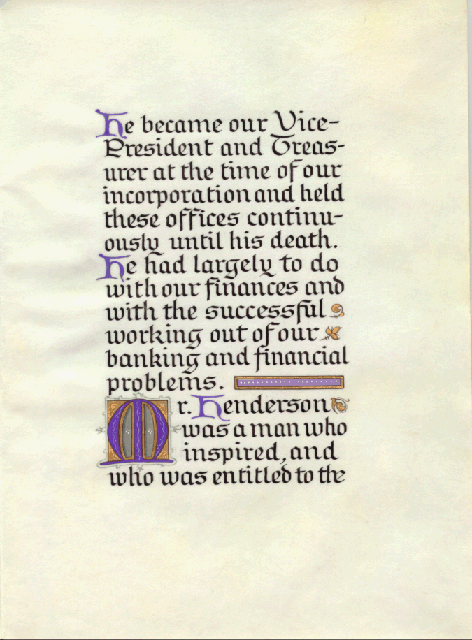 He became our Vice-
President and Treas-
urer at the time of our
incorporation and held
these offices continu-
ously until his death.
He had largely to do
with our finances and
with the successful
working out of our
banking and financial
problems.
Mr. Henderson
was a man who
inspired, and
who was entitled to the